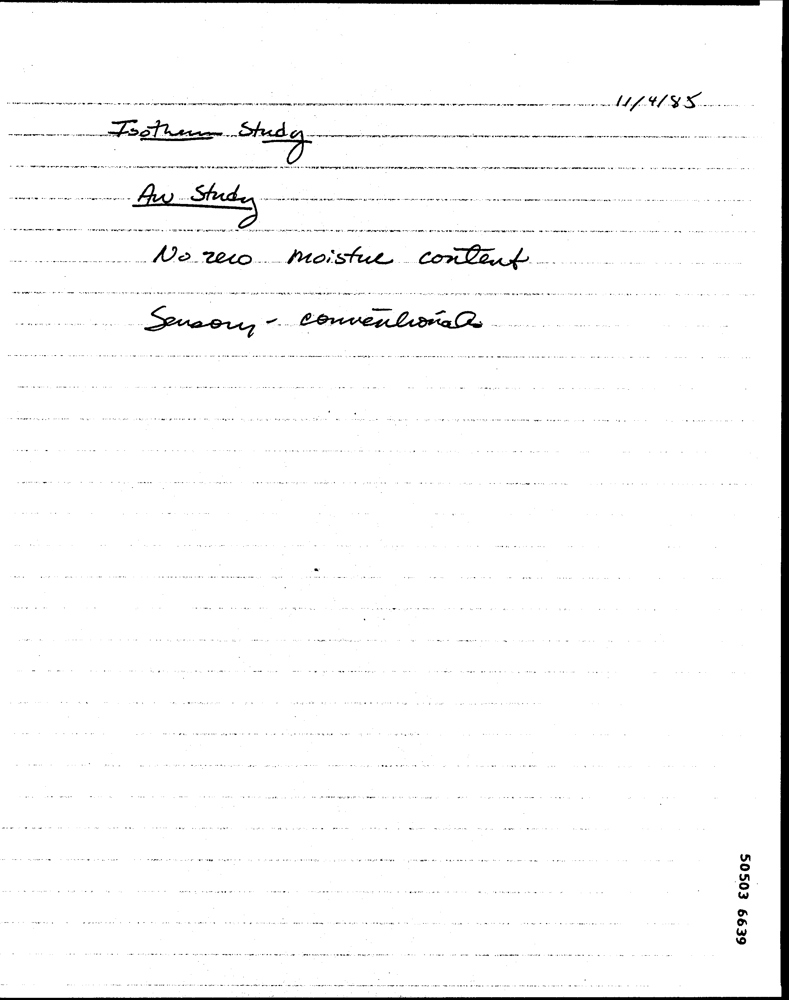 11/4/85
Isotherm Study
Aw Study
No zero moisture content
Sensory - conventionals
50503 6639